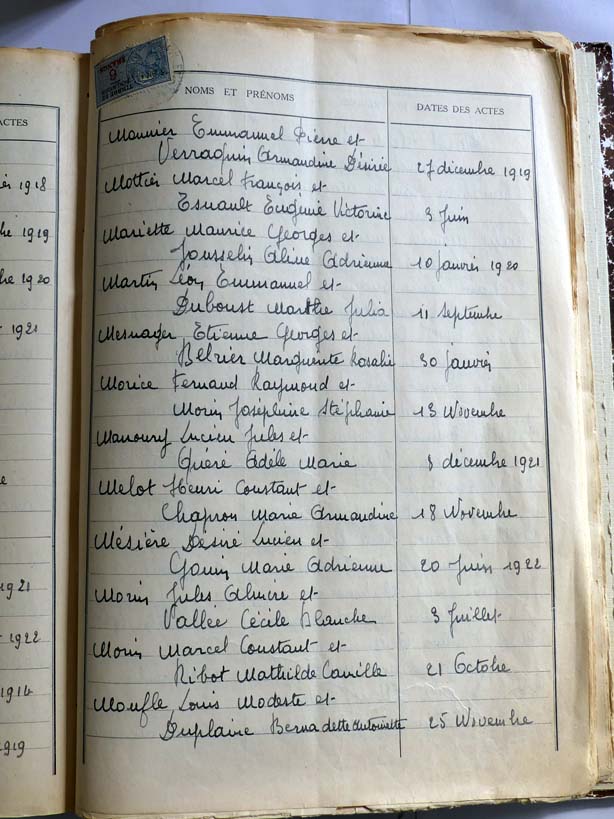 ACTES
1918
1919
1920
1921
1921
1922
1914
1919
6
FRANCS
NOMS ET PRÉNOMS DATES DES ACTES
Mounier Emmanuel Pierre et
Verraquin Armandine Désirée 27 décembre 1919
Mottier Marcel François et
Esnault Eugénie Victorine 3 Juin
Mariette Maurice Georges et
Jousselin Aline Adrienne 10 janvier 1920
Martin Léon Emmanuel et
Duboust Marthe Julia 11 Septembre
Mesnager Etienne Georges et
Marguerite Rosalie 30 janvier
Morice Fernand Raymond et
Morin Joséphine Stéphanie 13 Novembre
Manoury Lucien Jules et
Quéré Adèle Marie décembre 1921
Melot Henri Constant et
Chapron Marie Armandine 18 Novembre
Mésière Désiré Lucien et
Marie Adrienne 20 Juin 1922
Morin Jules et
Vallée Cécile Blanche 3 Juillet
Morin Marcel Constant et
Ribot Mathilde Camille 21 Octobre
Moufle Louis Modeste et
Duplaine Bernadette Antoinette 25 Novembre